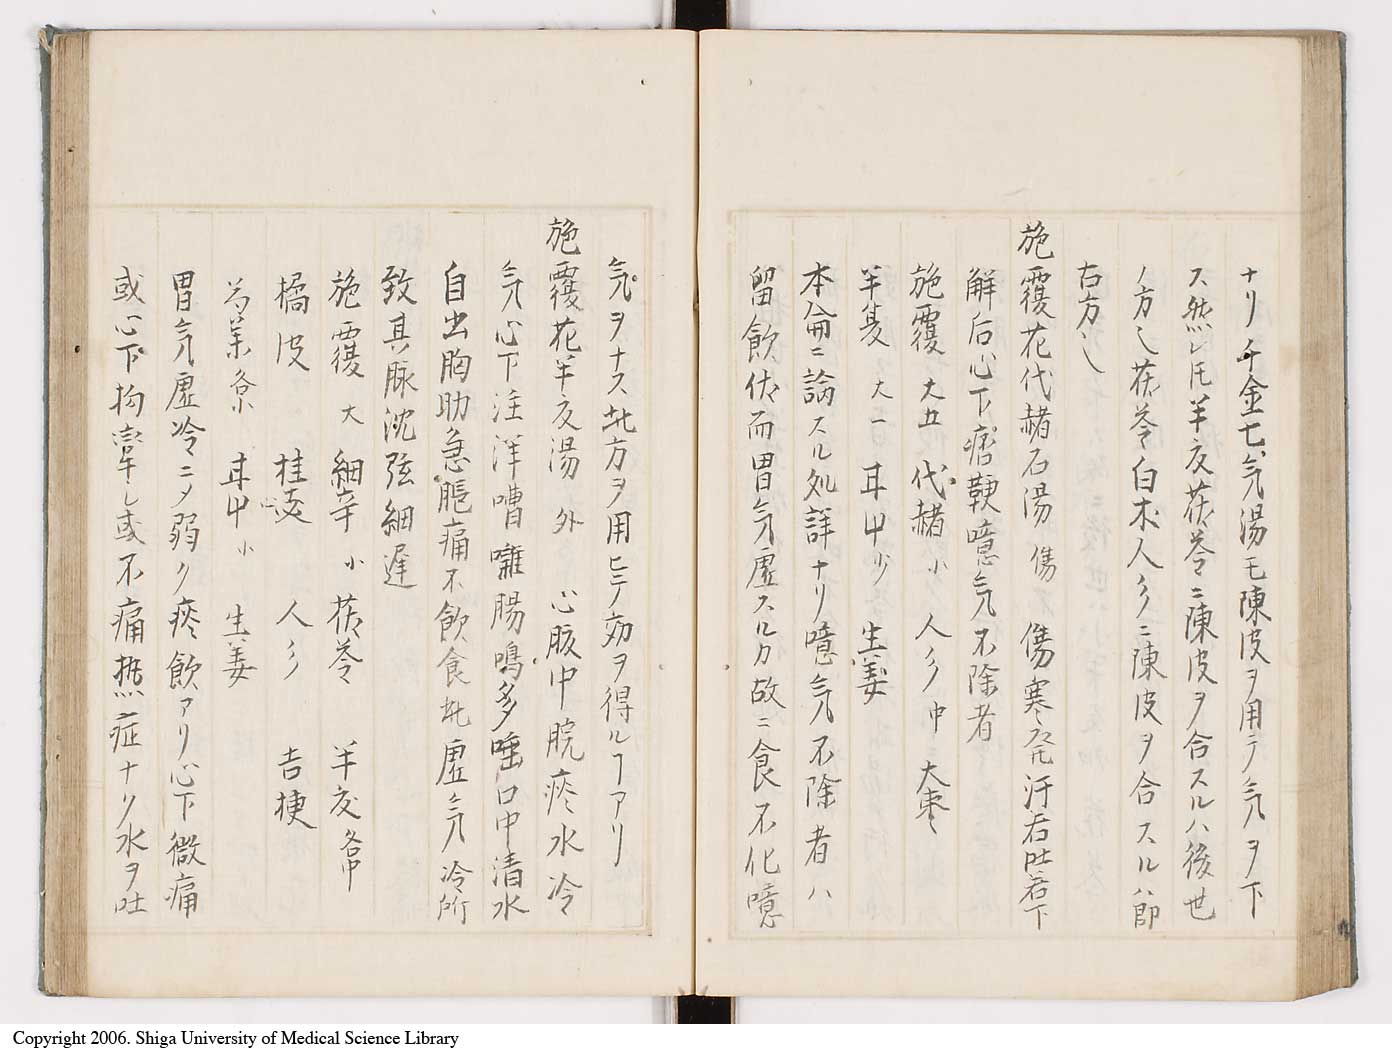 ナリ千金七気湯モ陳皮ヲ用テ気ヲ下
ス然レ𪜈半夏茯苓ニ陳皮ヲ合スルハ後世
ノ方也茯苓白朮人参ニ陳皮ヲ合スルハ即
古方也
旋覆花代赭石湯 傷寒発汗若吐若下
解后心下痞鞕噫気不除者
旋覆 大五 代赭 小 人参 中 大棗
半夏 大一 耳中 少 生姜
本侖ニ論スル処詳ナリ噫気不除者ハ
留飲伏而胃気虚スルカ故ニ食不化噫
気ヲナス此方ヲ用ヒテ効ヲ得ルヿアリ
旋覆花半夏湯 外 心腹中脘痰水冷
気心下汪洋嘈囃腸鳴多唾口中清水
自出胸肋急脹痛不飲食此虚気冷所
致其脉沈弦細遅
旋覆 大 細辛 小 茯苓 半夏 各中
橘皮 桂支 心 人参 吉梗
芍薬 各小 耳中 小 生姜
胃気虚冷ニメ弱ク痰飲アリ心下微痛
或心下拘挛シ或不痛㷔症ナリ水ヲ吐
Copyright 2006. Shiga University of Medical Science Library